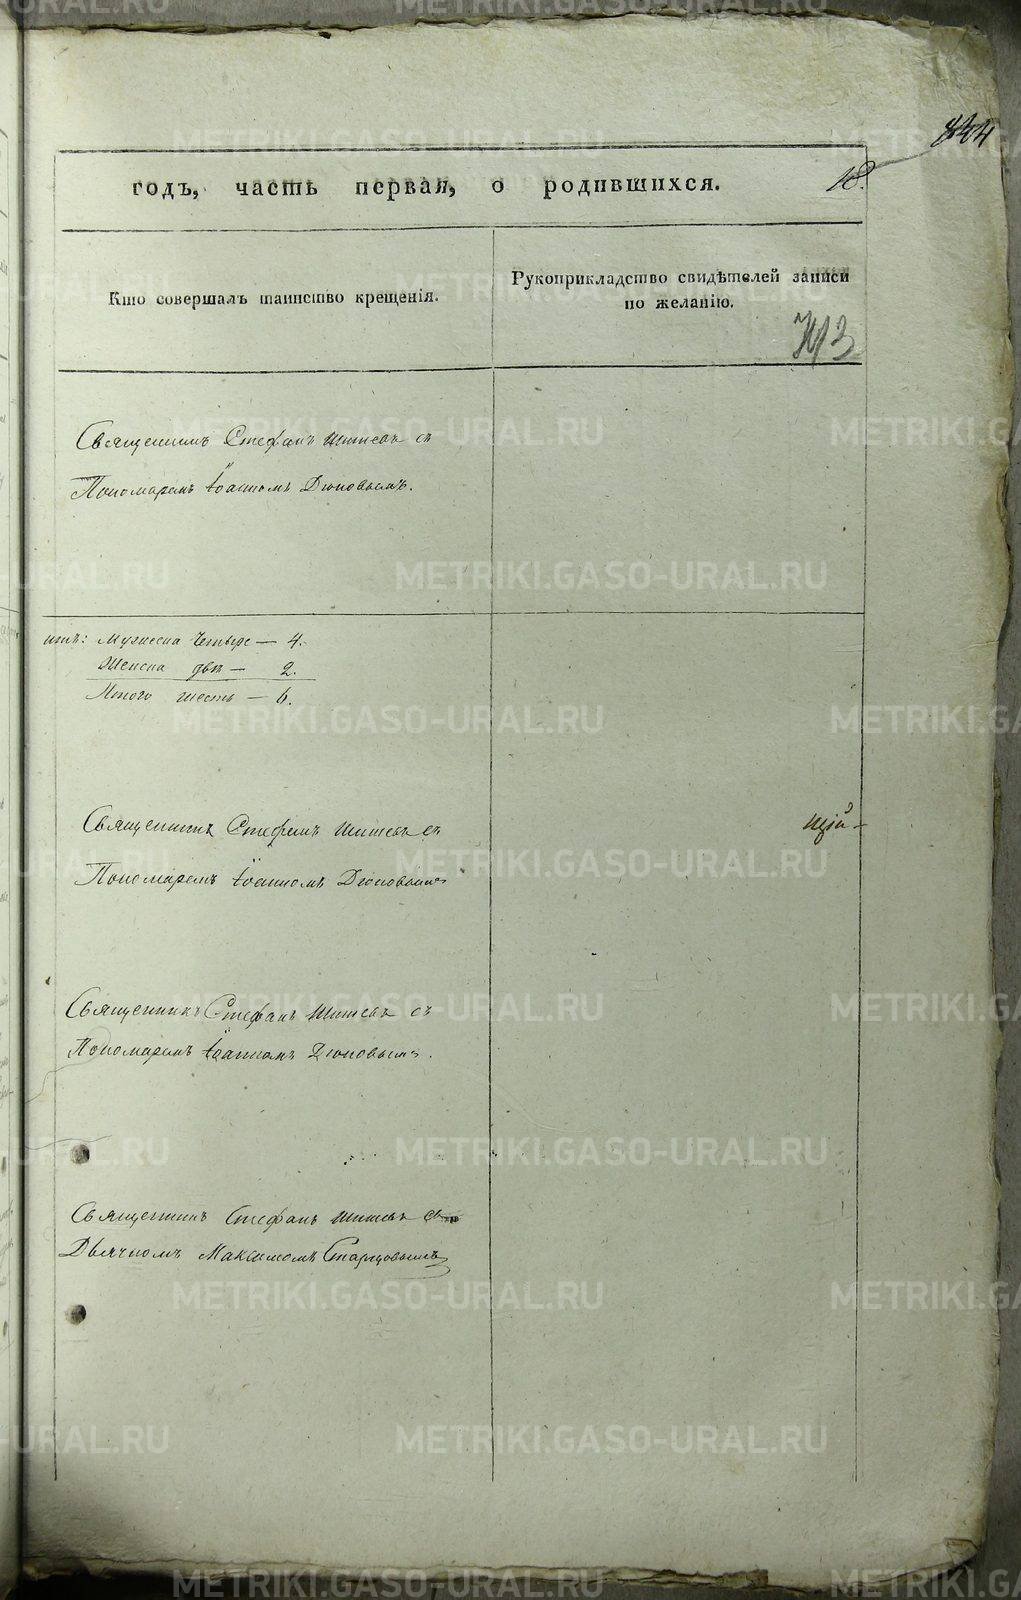 годъ, часть первая, о родившихся.
18.
Кто совершалъ таинство крещенія.
Рукоприкладство свидѣтелей записи
по желанію.
Священникъ Стефанъ съ
Пономаремъ Іоанномъ Дюковымъ.
итъ: Мужеска четыре — 4.
Женска двѣ — 2.
Итого шесть — 6.
Священникъ Стефанъ съ
Пономаремъ Іоанномъ Дюковымъ
щій
Священникъ Стефанъ съ
Пономаремъ Іоанномъ Дюковымъ.
Священникъ Стефанъ съ
Дьячкомъ Максимомъ Старцовымъ
METRIKI.GASO-URAL.RU